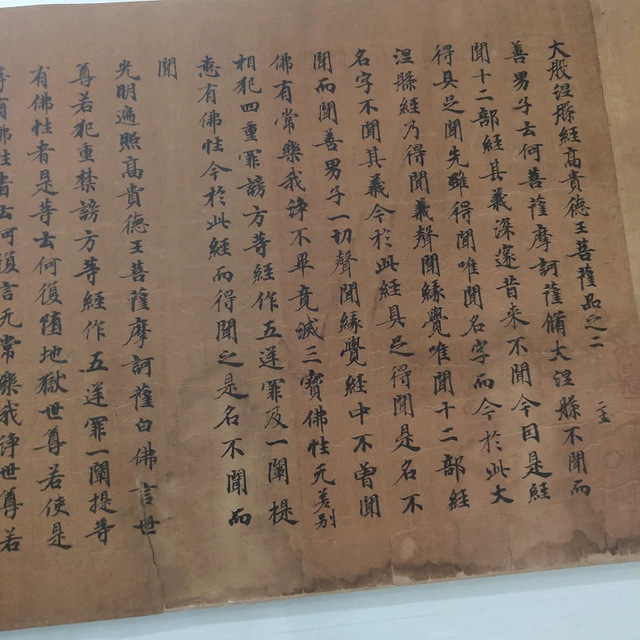 大般涅槃經高貴德王菩薩品之二
善男子云何菩薩摩訶薩脩大涅槃不聞而
聞十二部經其義深邃昔來不聞今因是經
得具足聞先雖得聞唯聞名字而今於此大
涅槃經乃得聞義聲聞緣覺唯聞十二部經
名字不聞其義今於此經具足得聞是名不
聞而聞善男子一切聲聞緣覺經中不曾聞
佛有常樂我淨不畢竟滅三寶佛性无差別
相犯四重罪謗方等經作五逆罪及一闡提
悉有佛性今於此經而得聞之是名不聞而
聞
光明遍照高貴德王菩薩摩訶薩白佛言世
尊若犯重禁謗方等經作五逆罪一闡提等
有佛性者是等云何復墮地獄世尊若使是
等有佛性者云何復言无常樂我淨世尊若